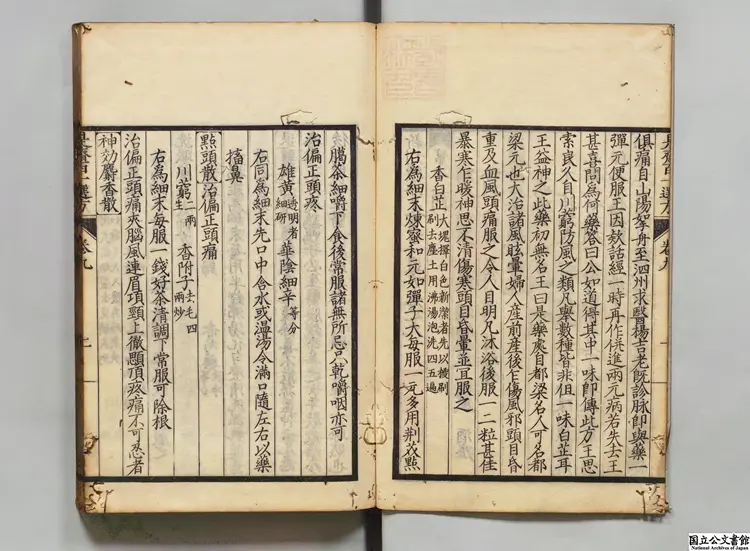 俱痛自山陽挐舟至泗州求醫楊吉老既診脉即與藥一
彈元便服王因欵話經一時再作併進兩元病若失去王
甚喜問為何藥荅曰公如道得其中一味即傳此方王思
索良久自川窮防風之類凡舉數種皆非但一味白芷耳
王益神之此藥初無名王曰是藥處自都梁名人可名都
梁元也大治諸風眩暈婦人産前産後乍傷風邪頭目昏
重及血風頭痛服之令人目明凡沐浴後服一二粒甚佳
暴寒乍暖神思不清傷寒頭目昏暈並宜服之
香白芷大塊擇白色新潔者先以椶刷
刷去塵土用沸湯泡洗四五遍
右為細末煉蜜和元如彈子大每服一元多用荆芥點
臈茶細嚼下食後常服諸無所忌只乾嚼咽亦可
治偏正頭疼
雄黄透明者細研 華陰細辛等分
右同為細末先口中含水或温湯令滿口隨左右以藥
搐鼻
點頭散治偏正頭痛
川窮二兩生 香附子去毛四兩炒
右為細末每服一錢好茶清調下常服可除根
治偏正頭痛夾腦風連眉項頸上徹巓頂疼痛不可忍者
神効麝香散
國立公文書館
National Archives of Japan